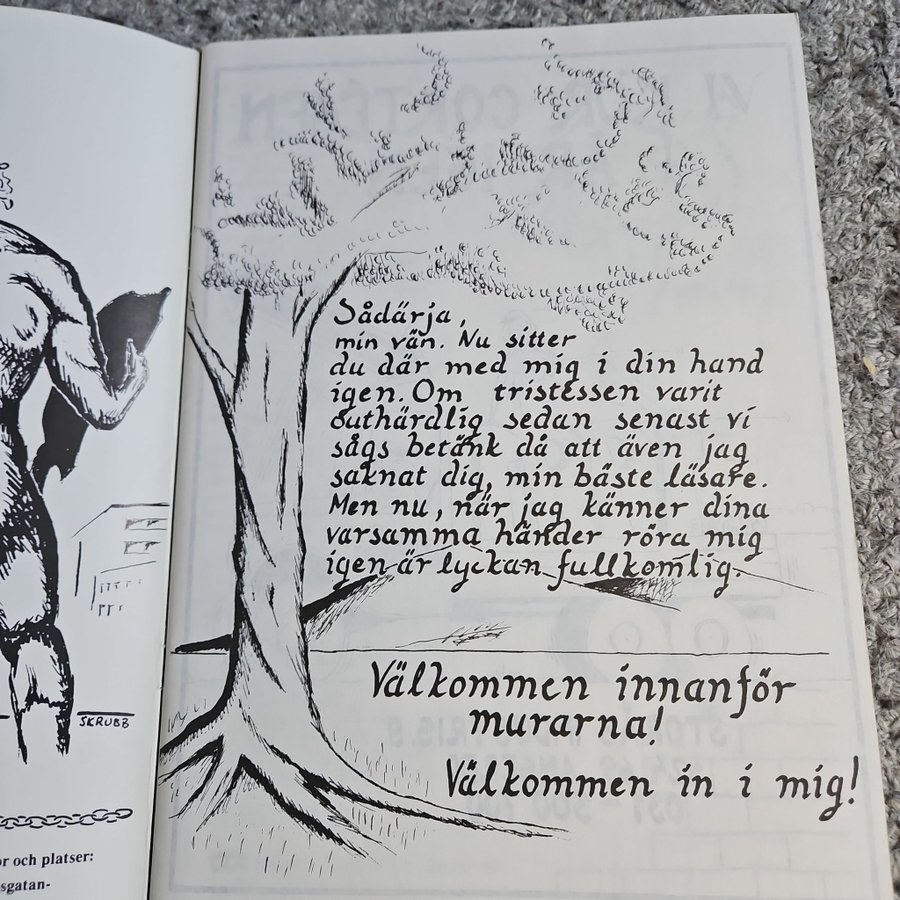 SKRUBB
or och platser:
sgatan-
Sådärja,
min vän. Nu sitter
du där med mig i din hand
igen. Om tristessen varit
outhärdlig sedan senast vi
sågs betänk då att även jag
saknat dig, min bäste läsare.
Men nu, när jag känner dina
varsamma händer röra mig
igen är lyckan fullkomlig.
Välkommen innanför
murarna!
Välkommen in i mig!